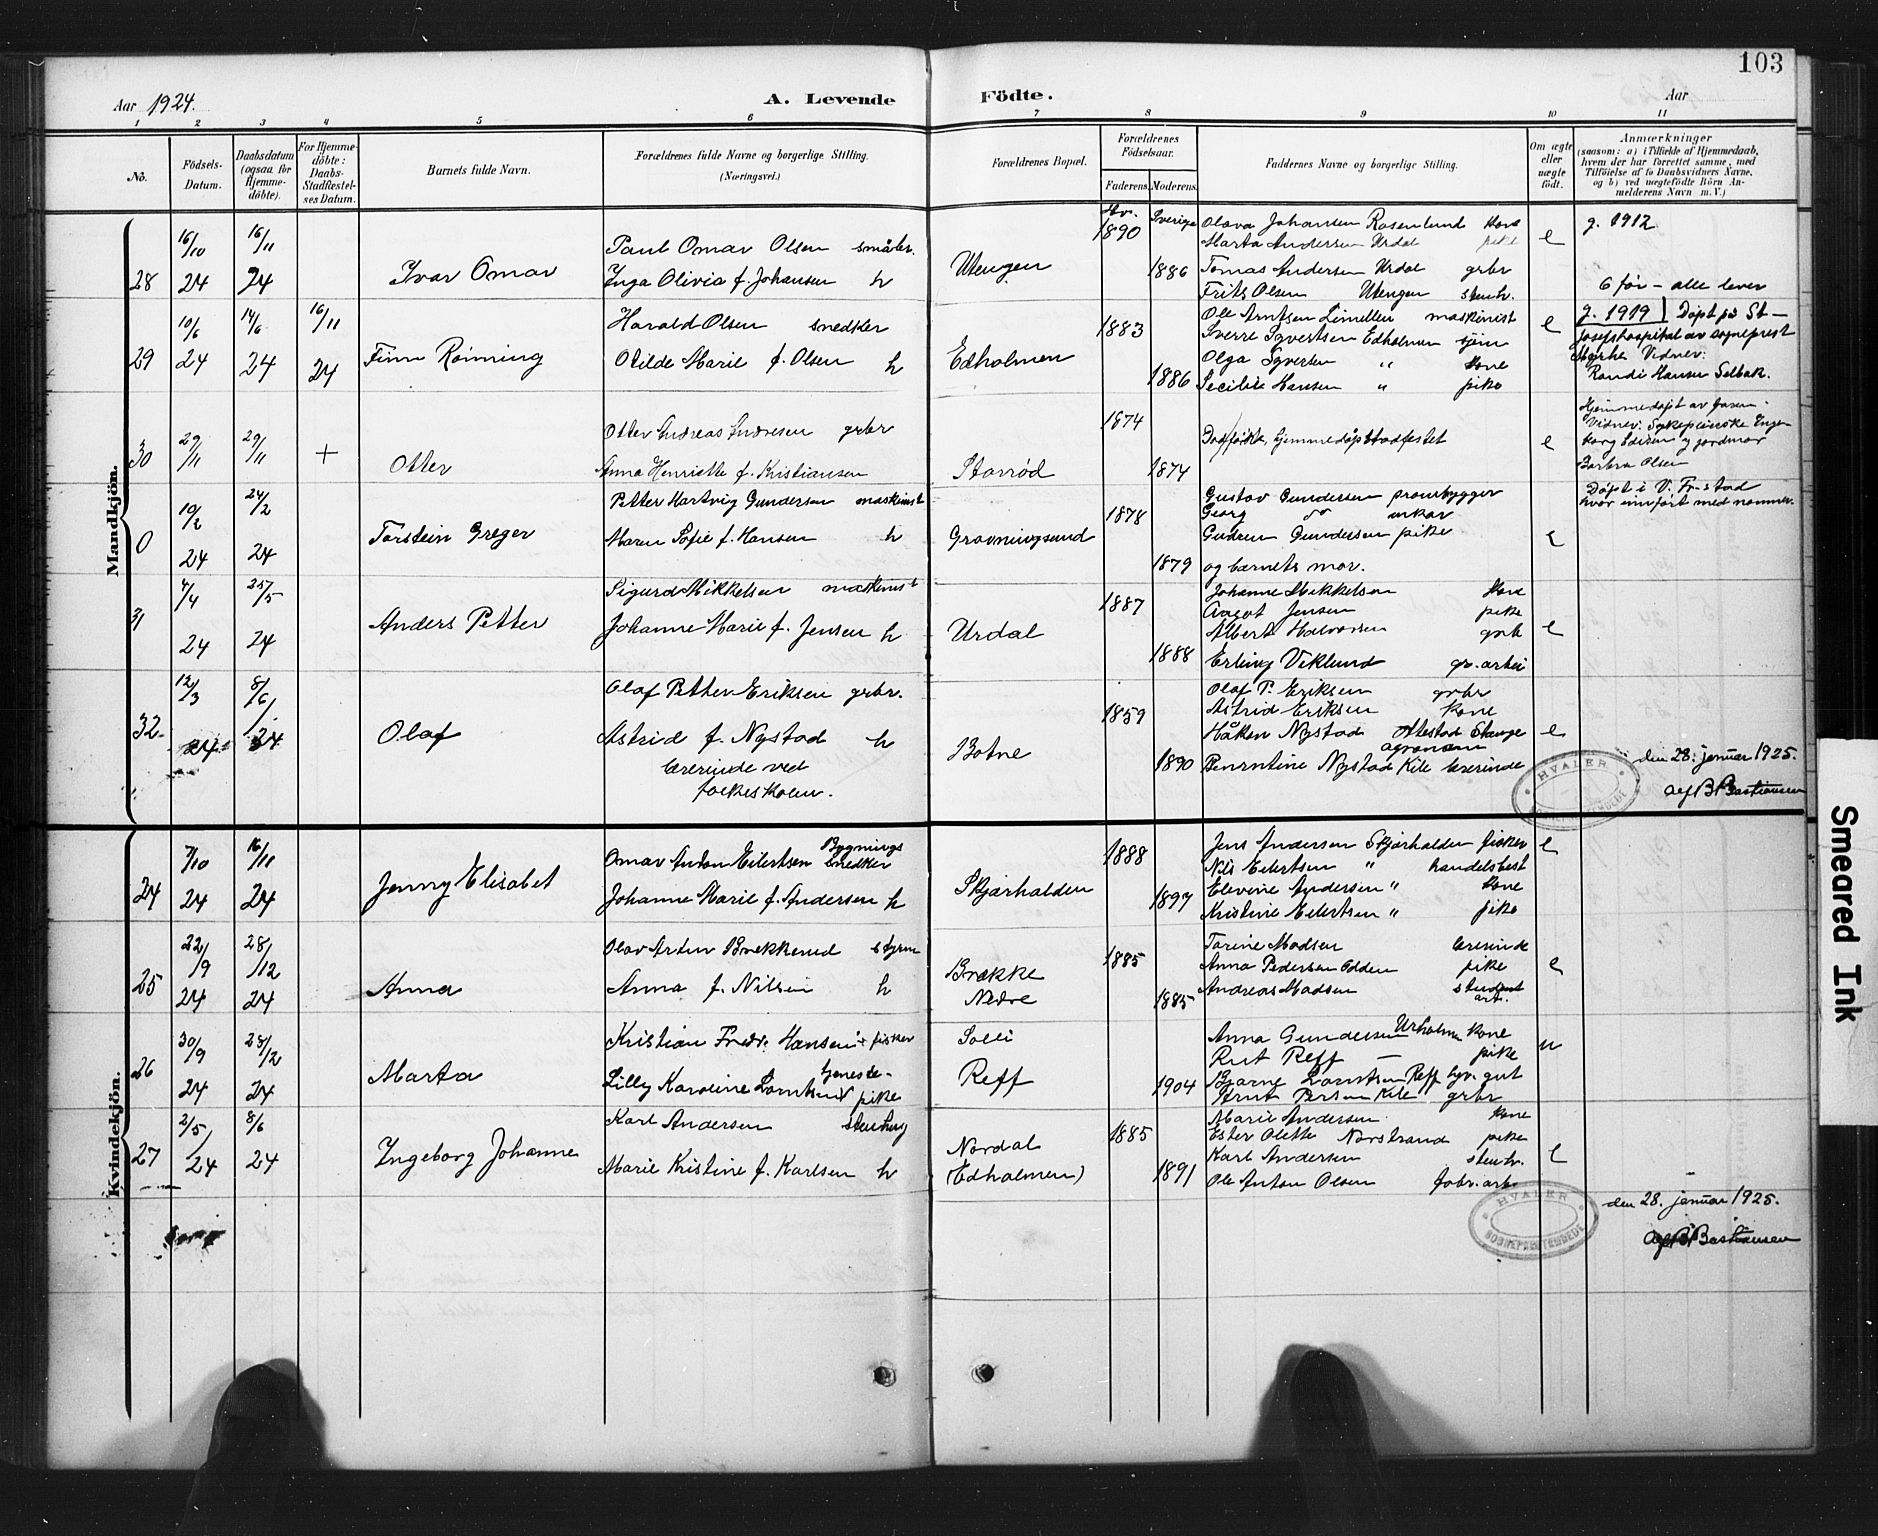 103
Aar 1924.
A. Levende
Födte.
Aar
1 2 3 4 5 6 7 8 9 10 11
No.
Födsels-Datum.
Daabsdatum (ogsaa for Hjemme-döbte).
For Hjemme-döbte: Daabs-Stadfæstel-ses Datum.
Barnets fulde Navn.
Forældrenes fulde Navne og borgerlige Stilling.
(Næringsvei.)
Forældrenes Bopæl.
Forældrenes Födselsaar.
Faderens. Moderens.
Faddernes Navne og borgerlige Stilling.
Om ægte eller uægte födt.
Anmærkninger
(saasom: a) i Tilfælde af Hjemmedaab,
hvem der har forrettet samme, med
Tilföielse af to Daabsvidners Navne,
og b) ved uegtefödte Börn An-
melderens Navn m. V.)
Mandkjön.
28
16/10 24
16/11 24
Ivar Omar
Paul Omar Olsen småbr.
Inga Olivia f. Johansen h
Utengen
1890
Sverige
1886
Olava Johansen Rosenlund kone
Marta Andersen Urdal pike
Tomas Andersen Urdal grbr
Frits Olsen Utengen stenh.
e
g. 1912
6 før - alle lever
29
10/6 24
14/6 24
16/11 24
Finn Rönning
Harald Olsen snedker
Otilde Marie f. Olsen h
Edholmen
1883
1886
Ole Arntsen maskinist
Sverre Syvertsen Edholmen sjøm
Olga Syvertsen " kone
Secilie Hansen " pike
e
g. 1919 Døpt på St-
Josefshospital av sogneprest
Vidner:
Randi Hansen Selbak.
30
29/11
29/11
+
Otter
Otter Andreas Andresen grbr
Anna Henriette f. Kristiansen
Storrød
1874
1874
hjemmedåp stadfestet
e
Hjemmedøpt av
Vidner: Sykepleierske Inge-
borg og jordmor
Barbra Olsen
0
19/2 24
24/2 24
Torstein Greger
Petter Hartvig Gundersen maskinist
Maren Sofie f. Hansen h
Gravningsund
1878
1879
Gustav Gundersen
Georg do
Gudrun Gundersen pike
og barnets mor.
e
Døpt i V. Fr.stad
hvor innført med nommer.
31
4/4 24
25/5 24
Anders Petter
Sigurd Mikkelsen maskinist
Johanne Marie f. Jensen h
Urdal
1887
1888
Johanne Mikkelsen kone
Aagot Jensen pike
Albert Halvorsen grbr
Erling Viklund gr. arbei
e
32
12/3 24
8/6 24
Olaf
Olaf Petter Eriksen grbr.
Astrid f. Nystad h
lærerinde ved
folkeskolen.
Botne
1859
1890
Olaf P. Eriksen grbr
Astrid Eriksen kone
Håken Nystad Ottestad Stange
agronom
Nystad Kile lærerinde
e
HVALER
SOGNEPRESTEMBEDE
den 28. januar 1925.
Alf B Bastiansen
Kvindekjön.
24
7/10 24
16/11 24
Jenny Elisabet
Omar Anton Eilertsen Bygnings
snedker
Johanne Marie f. Andersen h
Skjærhalden
1888
1897
Jens Andersen Skjærhalden fisker
Nils Eilertsen " handelsbest
Elevine Andersen " kone
Kristine Eilertsen " pike
e
25
22/9 24
28/12 24
Anna
Olav Artur Brekkerud styrm
Anna f. Nilsen h
Brække
Nedre
1885
1885
Torine Madsen lærerinde
Anna Pedersen Odden pike
Andreas Madsen student
art.
e
26
30/9 24
28/12 24
Marta
Kristian Fredr. Hansen fisker
Lilly Karoline Lorntsen tjeneste-
pike
Solli
Reff
1904
Anna Gundersen Urholmen kone
Rut Reff — pike
Bjarne Lorntsen Reff gut
Persen Kile grbr
u
27
2/5 24
8/6 24
Ingeborg Johanne
Karl Andersen stenhug
Marie Kristine f. Karlsen h
Nordal
(Edholmen)
1885
1891
Marie Andersen kone
Ester Olette Norstrand pike
Karl Andersen stenh.
Ole Anton Olsen fabr. arb
e
HVALER
SOGNEPRESTEMBEDE
den 28. januar 1925.
Alf B Bastiansen
Smeared Ink